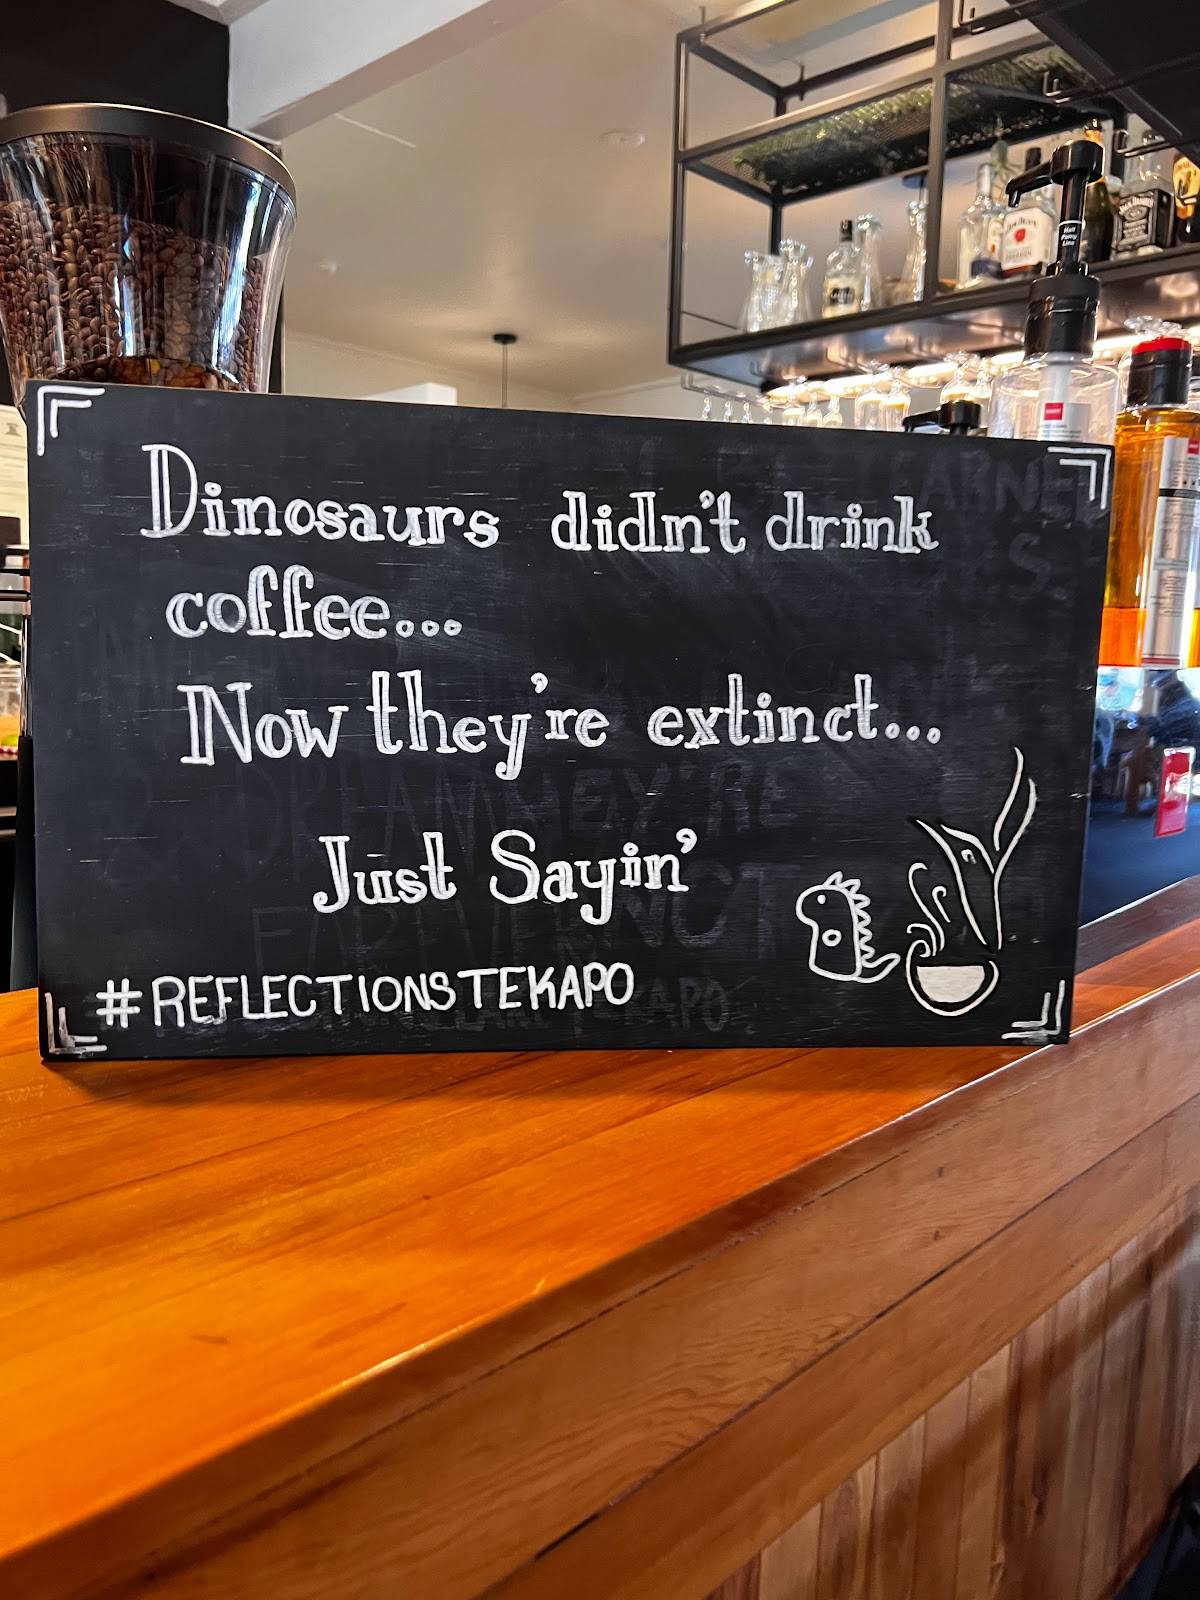 Dinosaurs didn't drink
coffee...
Now they're extinct...
Just Sayin'
#REFLECTIONSTEKAPO